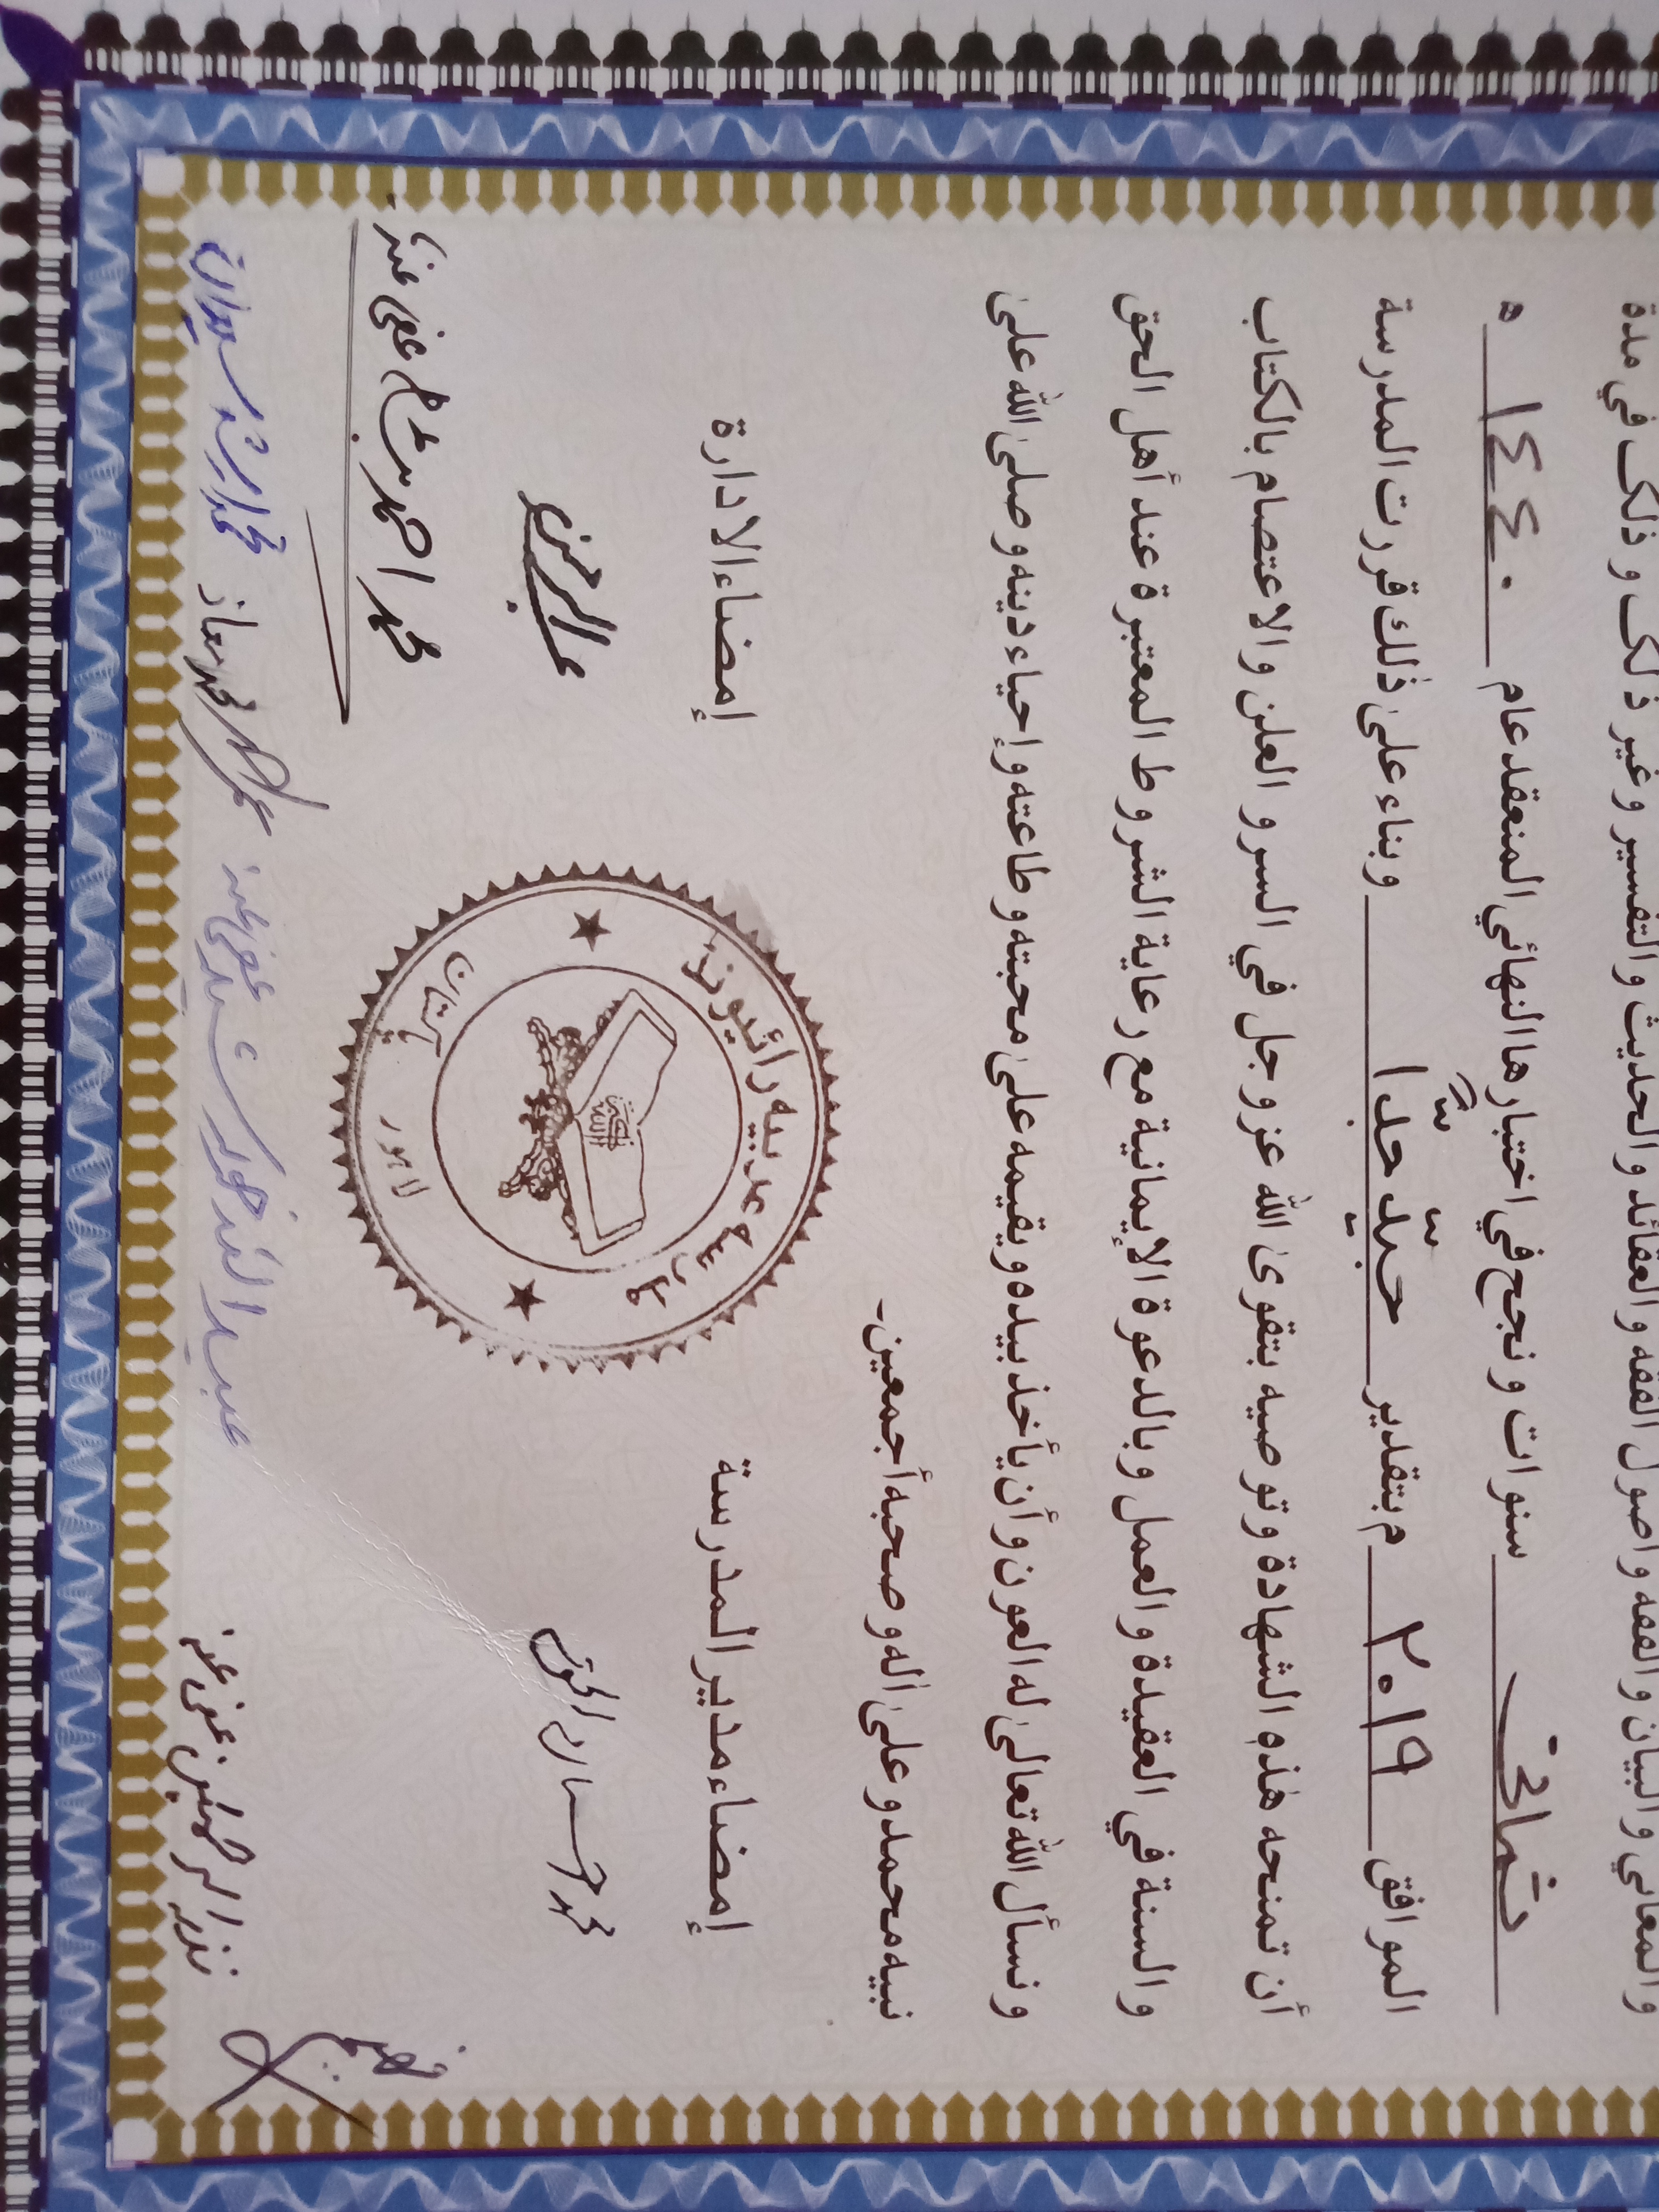 والمعاني والبيان والفقه واصول الفقه والعقائد والحديث والتفسير وغير ذلک و ذلک في مدة
ثماني سنوات ونجح في اختبارها النهائي المنعقد عام ١٤٤٠ ه
الموافق ٢٠١٩ م بتقدير جيّد جدّاً وبناء علیٰ ذٰلك قررت المدرسة
أن تمنحه هٰذه الشهادة وتوصيه بتقوی الله عز وجل في السر و العلن والاعتصام بالكتاب
والسنة في العقيدة والعمل وبالدعوة الإيمانية مع رعاية الشروط المعتبرة عند أهل الحق
ونسأل الله تعالیٰ له العون وأن يأخذ بيده ويقيمه علیٰ محبته وطاعته وإحياء دينه وصلی الله علیٰ
نبيه محمد وعلیٰ اٰله وصحبه أجمعين۔
إمضاء مدير المدرسة
إمضاء الادارة
عربيه رائيوند
لاهور
پاکستان
محمد احسان الحق
عبدالرحمن
محمد احمد
نذر الرحمٰن عفی عنه
عبيد الله خورشيد عفی عنه
محمد معاذ